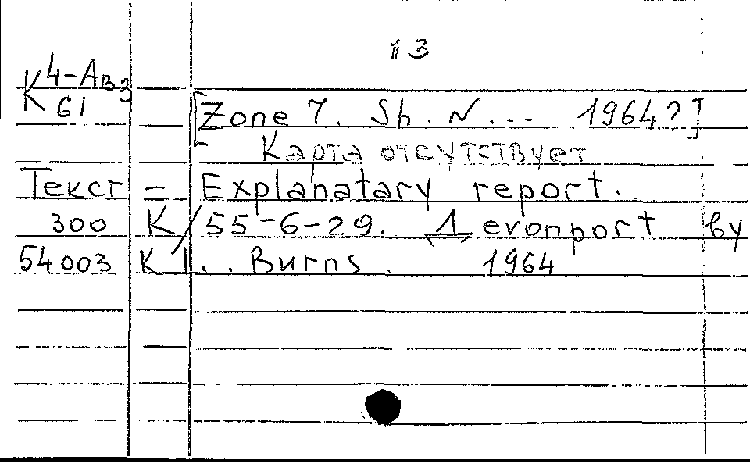 13
K 4-АвЗ
61
[Zone 7. Sh. N... 1964?]
Карта отсутствует
Текст = Explanatary report.
300 K/55-6-29. Devonport by
54003 K I.. Burns. 1964